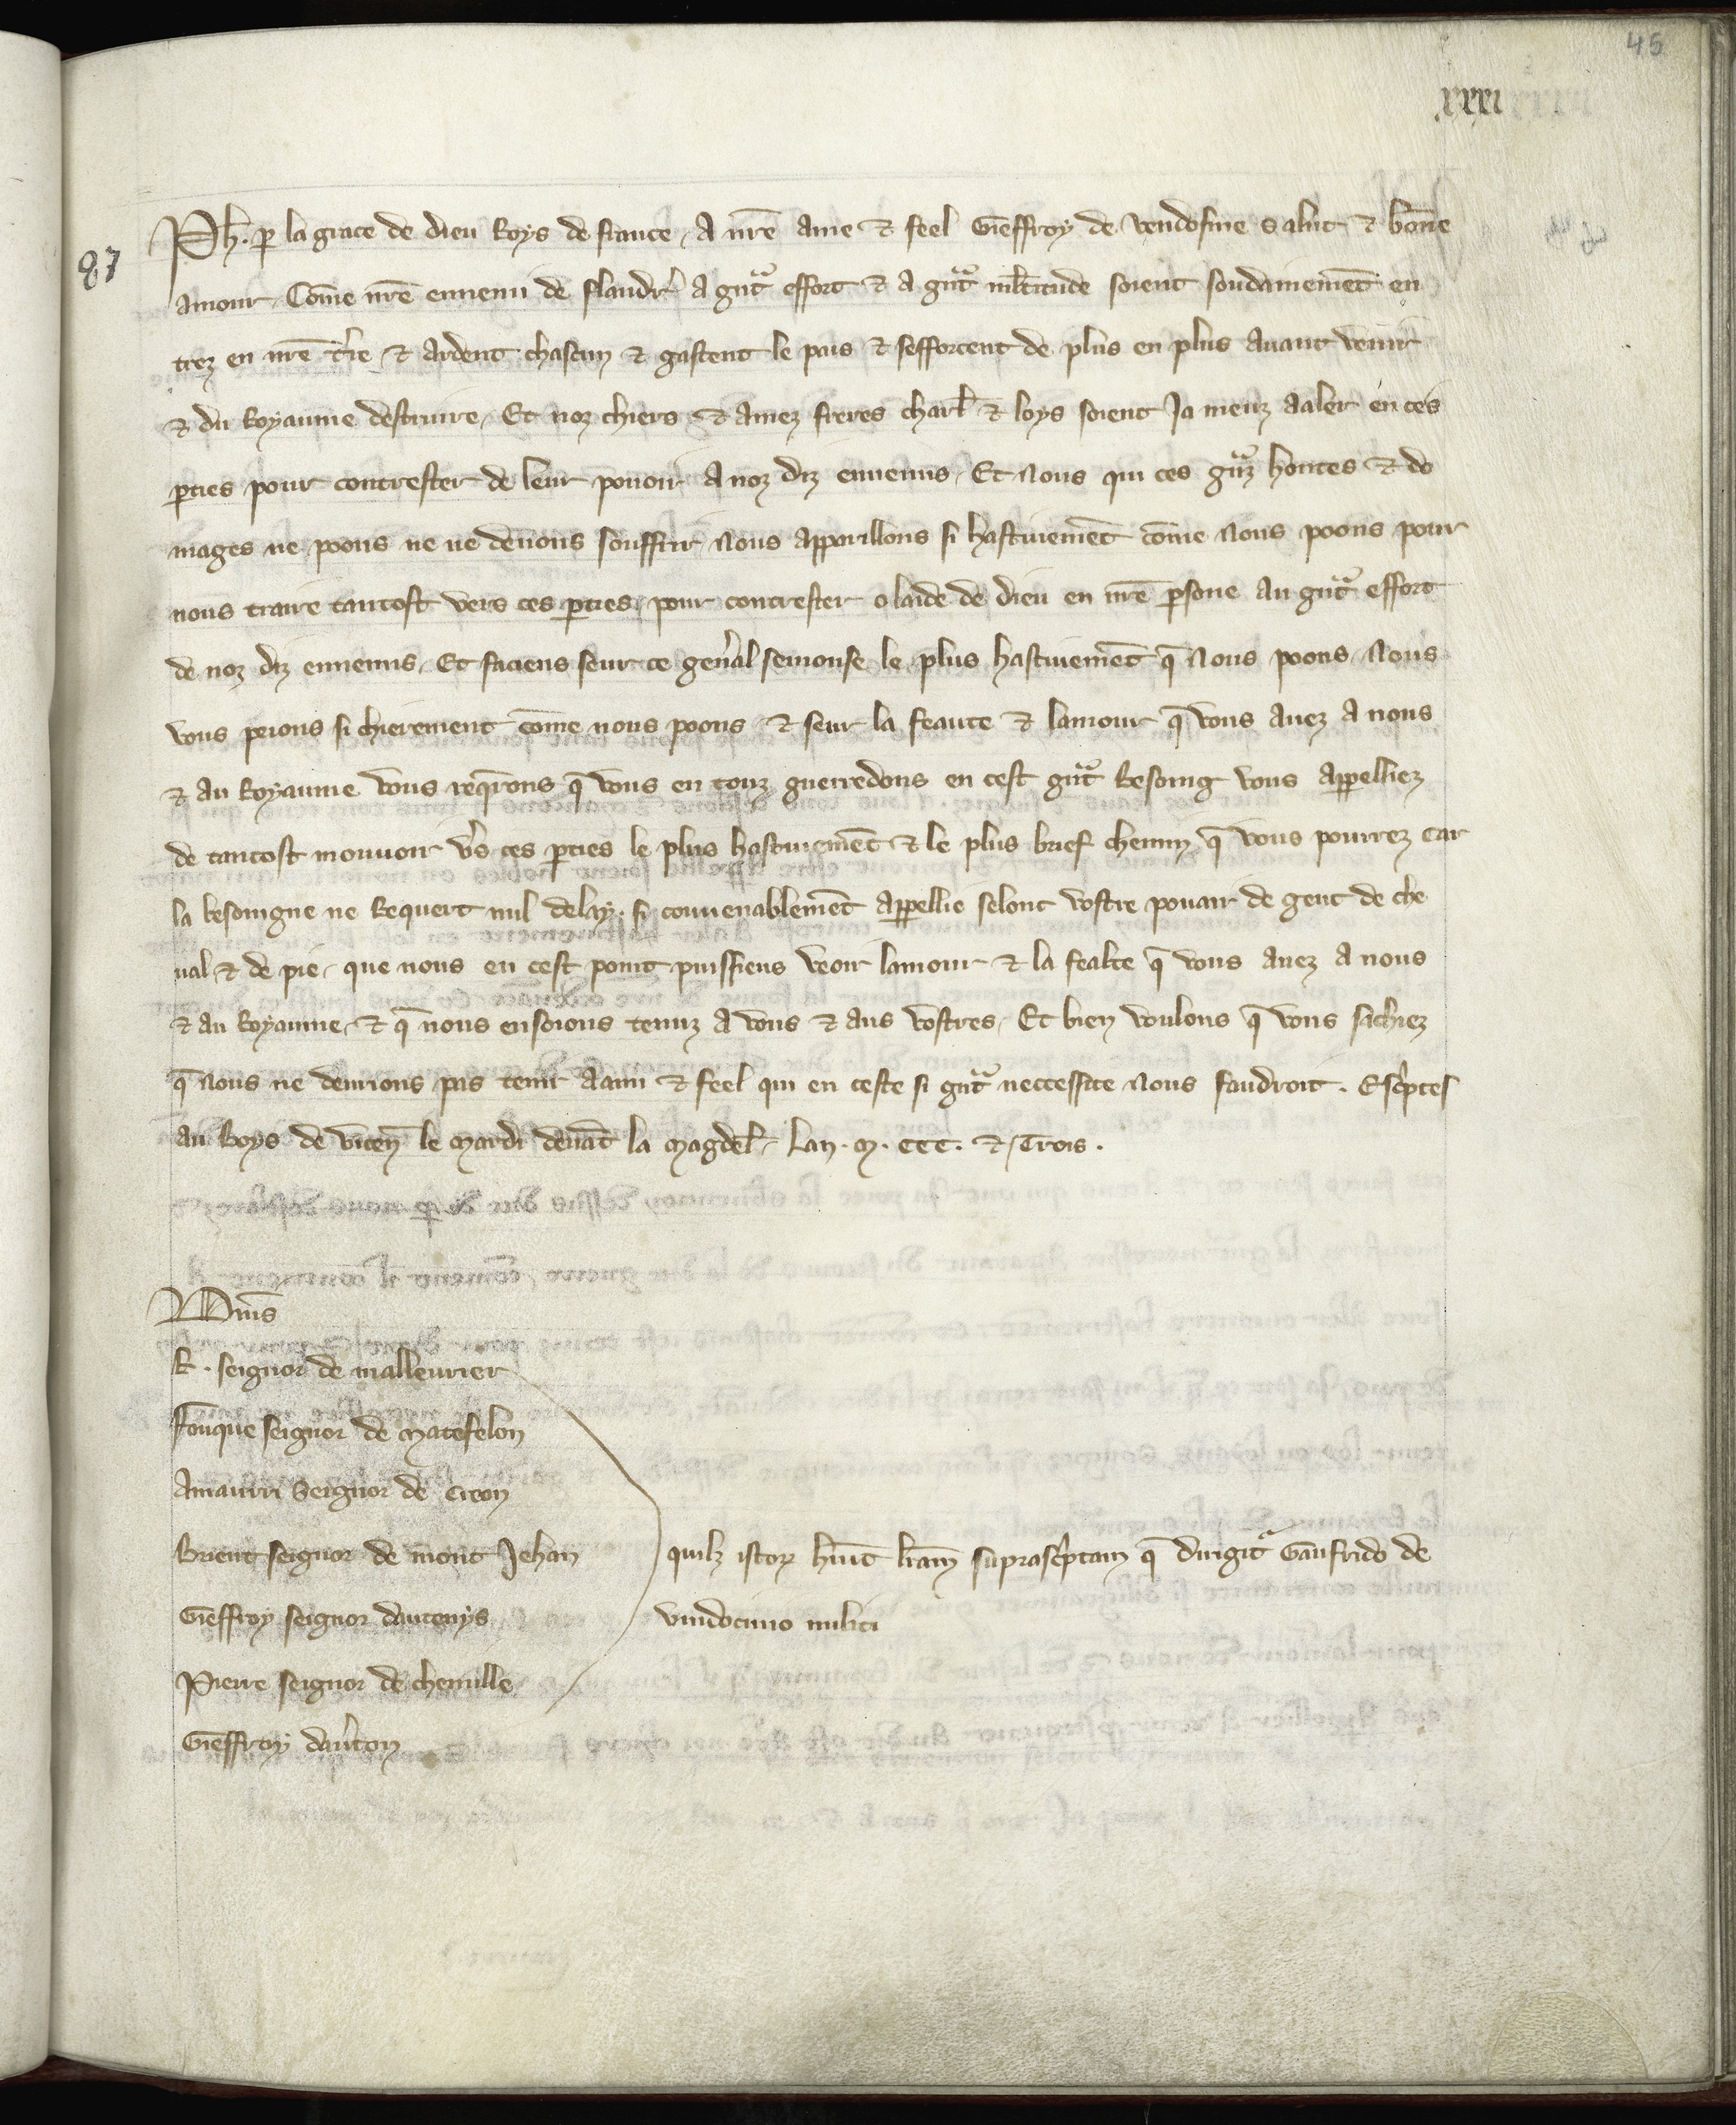 45
xxxi
87
Ph. p la grace de dieu Roys de france, A nr̃e Ame ⁊ feel Gieffroy de vendosme Salut ⁊ bon̄e
amour. Com̄e nr̃e ennemi de flandr̃ A gnt effort ⁊ A gnt mltitude soient soudainemēt en
trez en nr̃e tr̃e, ⁊ Ardent chascun ⁊ gastent le pais ⁊ sefforcent de plus en plus Auant venir
⁊ du Royaume destruire, Et noz chiers ⁊ Amez freres charl̃ ⁊ loys soient Ja meuz Aaler en ces
pties pour contrester de leur pouoir A noz diz ennemis, Et Nous qui ces gnz hontes ⁊ do
mages ne poons ne ne deuons souffrir Nous Apparillons si hastiuemēt com̄e Nous poons pour
nous traire tantost vers ces pties, pour contrester o laide de Dieu en nr̃e psone Au gnt effort
de noz diz ennemis, Et faciens seur ce gen̄al semonse le plus hastiuemēt q̄ Nous poons, Nous
vous prions si chierement com̄e nous poons, ⁊ seur la feaute ⁊ lamour q̄ vous Auez A nous
⁊ Au Royaume vous reqrons q̄ vous en touz guerredons en cest gnt Besoing vous Appelliez
de tantost mouuoir vs ces pties le plus hastiuemēt ⁊ le plus brief chemin q̄ vous pourrez Car
la besoingne ne Requert nul delay. si conuenablemēt Appellie selont vostre pouair de gent de che
ual ⁊ de pie, que nous en cest point puissiens veoir lamour ⁊ la fealte q̄ vous Auez A nous
⁊ Au Royaume, ⁊ q̄ nous ensoions tenuz A vous ⁊ Aus vostres, Et bien voulons q̄ vous sachiez
q̄ Nous ne deurions pas tenir Aami ⁊ feel qui en ceste si gnt neccessite Nous faudroit. Escptes
Au Boys de vicen̄ le Mardi deuāt la Magdel̃, Lan. M. CCC. ⁊ Trois.
Dn̄s
R. seignor de malleurier
Fouque seignor de Matefelon
Amaurri Seignor de Creon
Brient seignor de mont Jehan
Gieffroy seignor dancenys
Pierre seignor de chemille
Gieffroy dau̾ton
quilz istoꝝ hūit lr̃am suprascptam q̄ dirigit Gaufrido de
vindocino militi